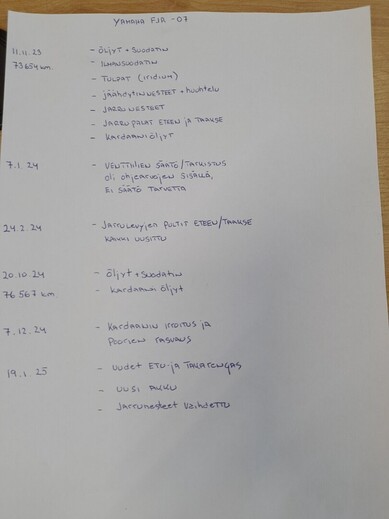 YAMAHA FJR -07
11.11.23 - ÖLJYT + SUODATIN
73654 km. - ILMANSUODATIN
- TULPAT (iridium)
- jäähdytinNESTEET + huuhtelu
- JARRUNESTEET
- JARRUPALAT ETEEN ja TAAKSE
- KARDAANIÖLJYT
7.1.24 - VENTTIILIEN SÄÄTÖ/TARKISTUS
OLI ohjearvojen SISÄLLÄ,
EI SÄÄTÖ TARVETTA
24.2.24 - JARRULEVYJEN PULTIT ETEEN/TAAKSE
KAIKKI UUSITTU
20.10.24 - ÖLJYT + SUODATIN
76567 km. - KARDAANI ÖLJYT
7.12.24 - KARDAANIN IRROITUS ja
POORIEN RASVAUS
19.1.25 - UUDET ETU- ja TAKARENGAS
- UUSI AKKU
- Jarrunesteet vaihdettu